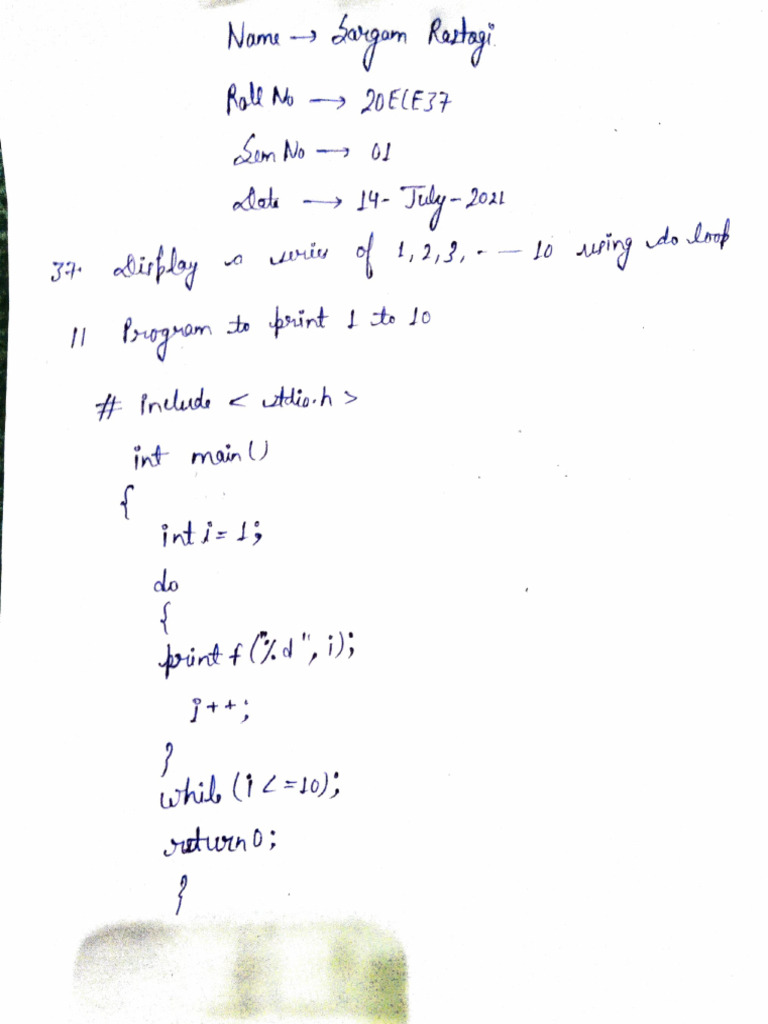 Name → Sargam Rastogi
Roll No → 20ECE37
Sem No → 01
Date → 14-July-2021
37. Display a series of 1,2,3, - — 10 using do loop
// Program to print 1 to 10
# include < stdio.h >
int main()
{
int i = 1;
do
{
printf ("%d", i);
i++;
}
while (i <=10);
return 0;
}